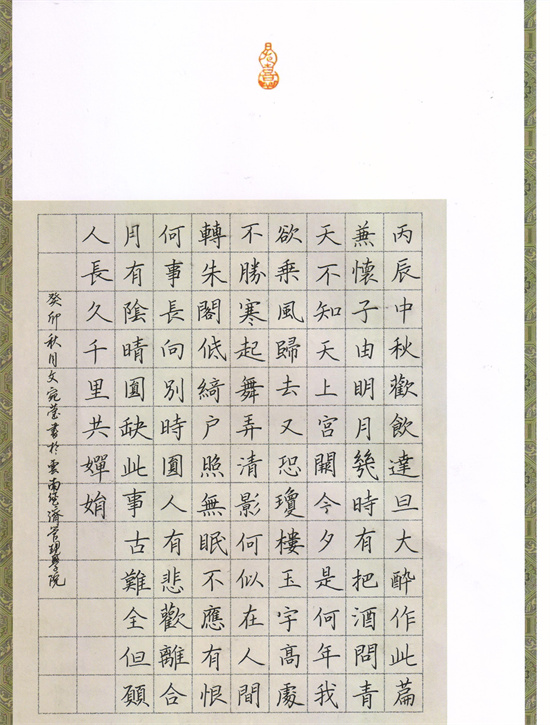 丙辰中秋歡飲達旦大醉作此篇
兼懷子由明月幾時有把酒問青
天不知天上宮闕今夕是何年我
欲乘風歸去又恐瓊樓玉宇高處
不勝寒起舞弄清影何似在人間
轉朱閣低綺户照無眠不應有恨
何事長向別時圓人有悲歡離合
月有陰晴圓缺此事古難全但願
人長久千里共嬋娟
癸卯秋月文宛莹書於雲南經濟管理學院